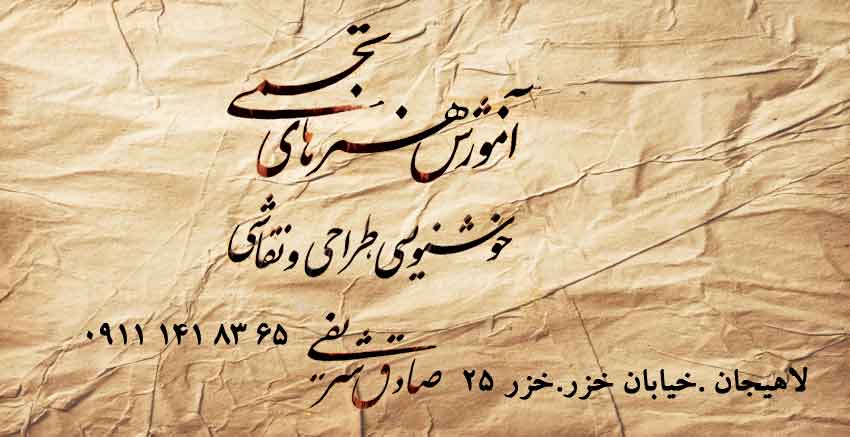 آموزش هنرهای تجسمی
خوشنویسی، طراحی و نقاشی
صادق شریفی
۰۹۱۱ ۱۴۱ ۸۳ ۶۵
لاهیجان .خیابان خزر.خزر ۲۵